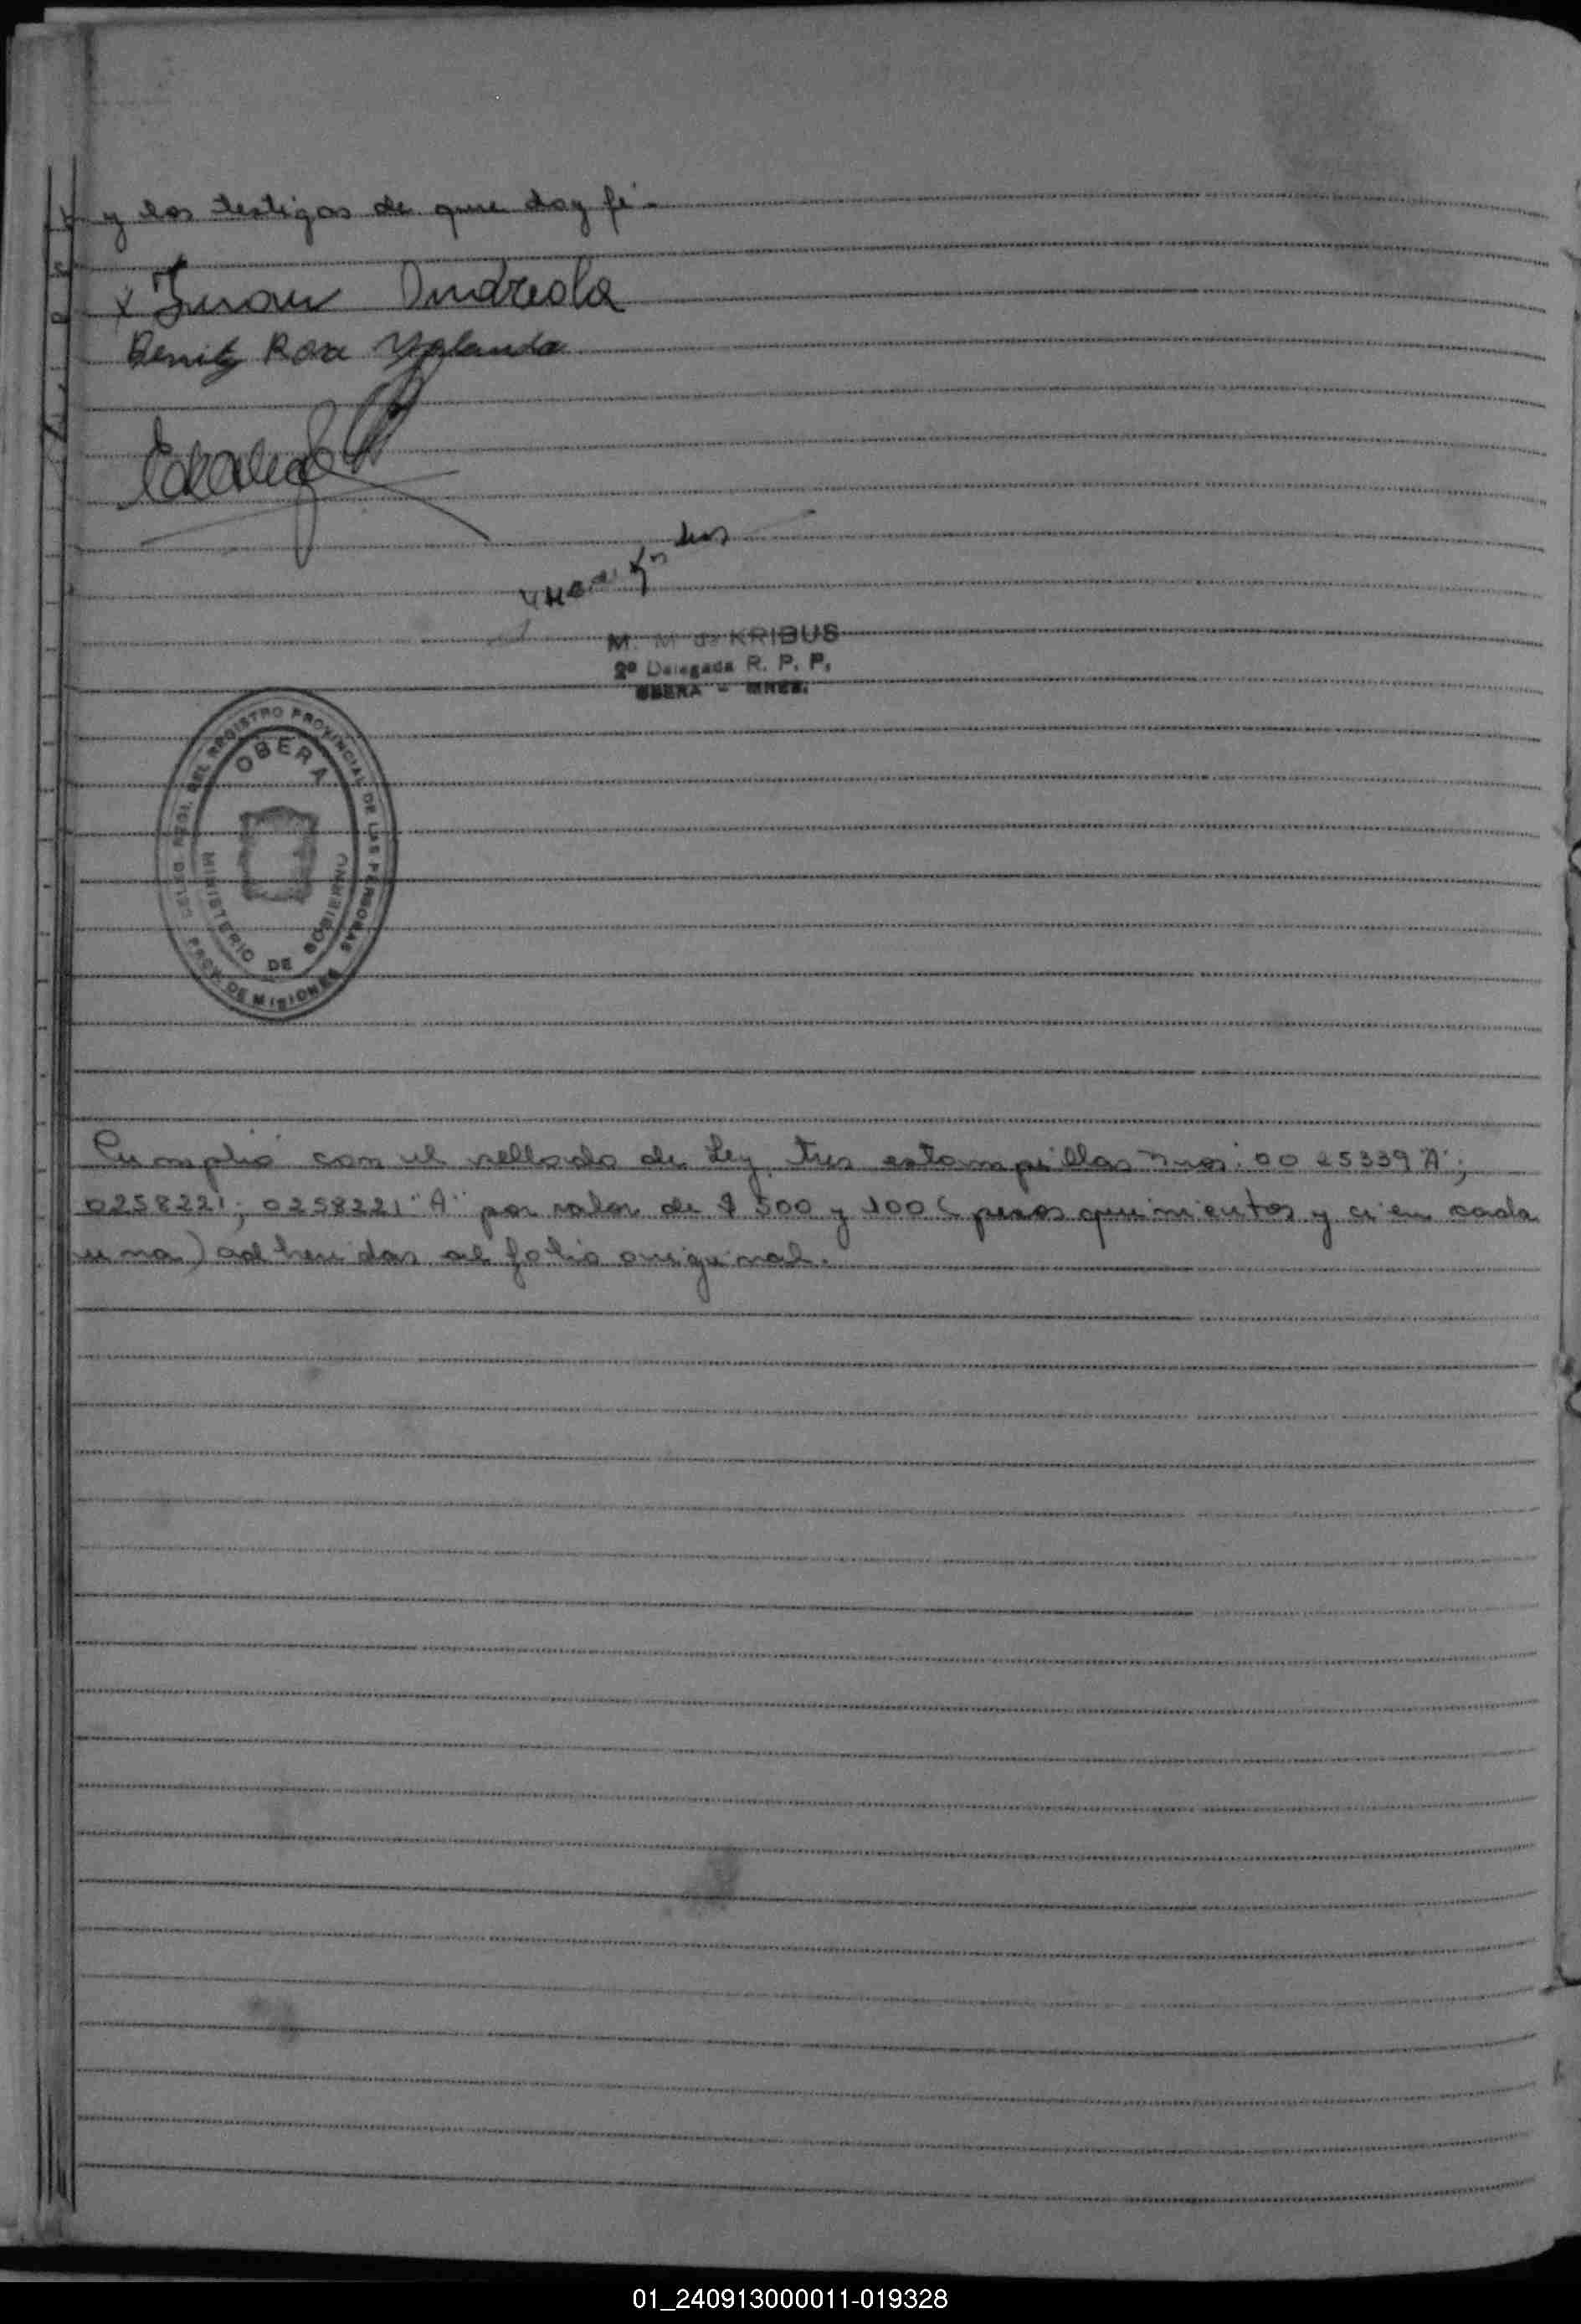 y los testigos de que doy fé-
x Juan Andreola
Benitz Rosa Yolanda
M. M de KRIBUS
2ª Delegada R. P. P.
OBERA - MNES.
DEL REGISTRO PROVINCIAL DE LAS PERSONAS
PROV. DE MISIONES
OBERA
MINISTERIO DE GOBIERNO
Cumplió con el sellado de Ley, tres estampillas nros: 0025339 "A";
0258221; 0258221 "A" por valor de $ 500 y 100 (pesos quinientos y cien cada
una) adheridas al folio original.
01_240913000011-019328